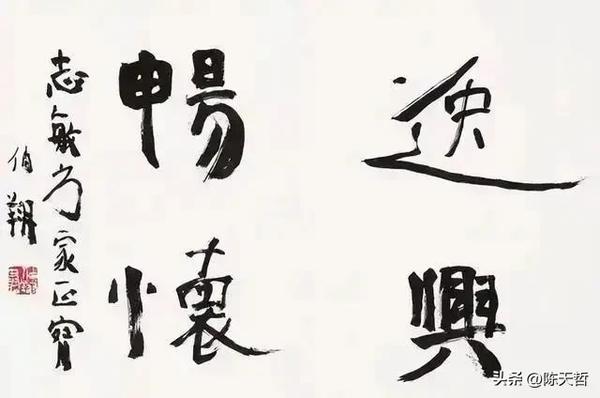 逸興
暢懷
志敏方家正寶
伯翔
头条 @陈天哲